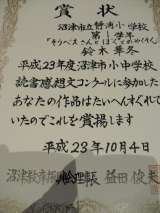 賞状
沼津市立静浦小学校
第1学年
「そらへえんとぼくとがめくん」
鈴木華冬
平成23年度沼津市小中学校
読書感想文コンクールに参加した
あなたの作品はたいへんすぐれて
いたのでこれを賞揚します
平成23年10月4日
沼津教市振興会
益田俊夫